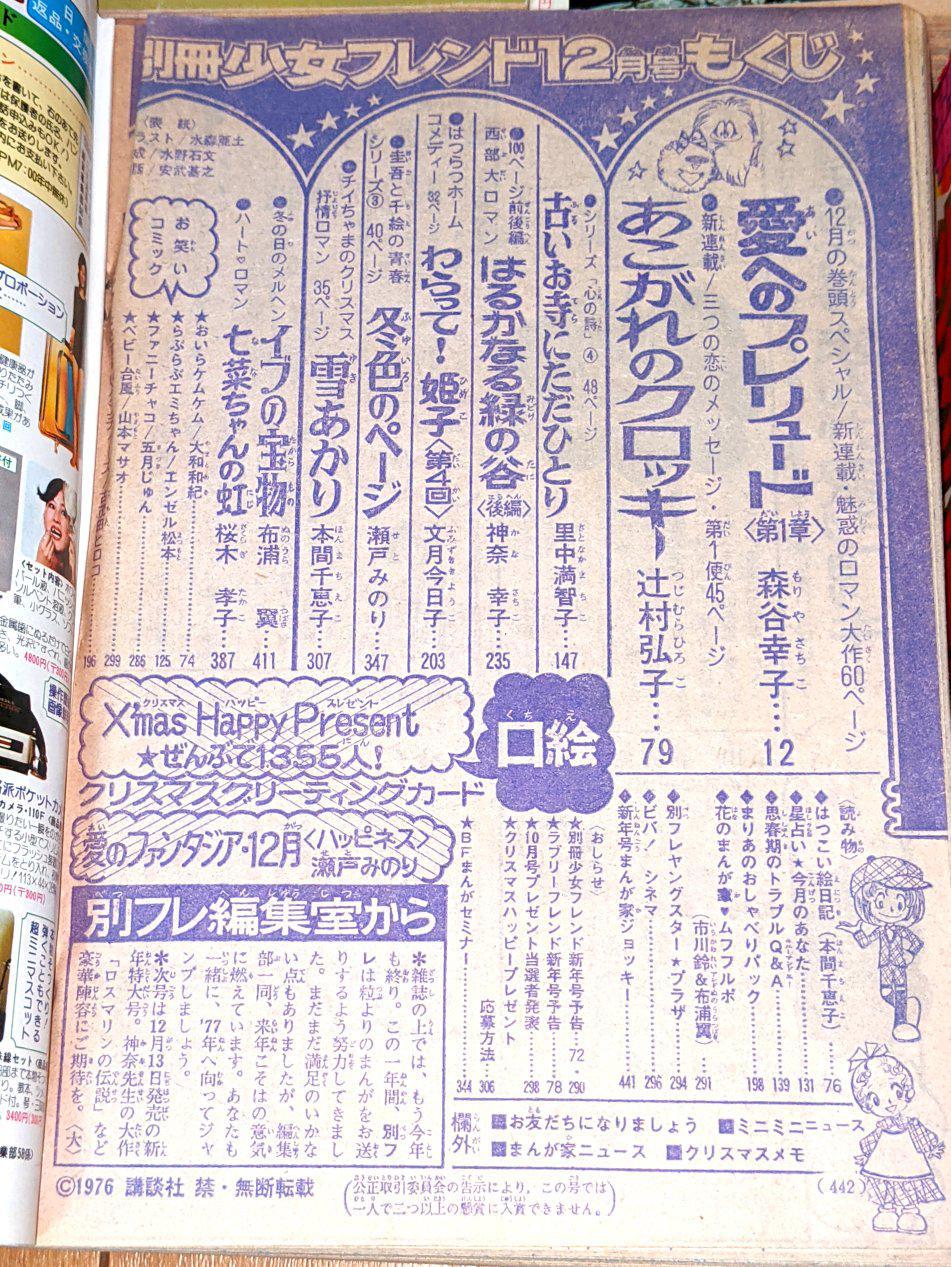 別冊少女フレンド12月号もくじ
●12月の巻頭スペシャル/新連載・魅惑のロマン大作60ページ
愛へのプレリュード〈第1章〉 森谷幸子…12
●新連載/三つの恋のメッセージ・第1便45ページ
あこがれのクロッキー 辻村弘子…79
●シリーズ「心の詩」④ 48ページ
古いお寺にただひとり 里中満智子…147
●100ページ前後編
西部大ロマン はるかなる緑の谷〈後編〉 神奈幸子…235
●はつらつホーム
コメディー 32ページ わらって!姫子〈第4回〉 文月今日子…203
●圭吾と千絵の青春
シリーズ③ 40ページ 冬色のページ 瀬戸みのり…347
●チイちゃまのクリスマス
抒情ロマン 35ページ 雪あかり 本間千恵子…307
●冬の日のメルヘン イブの宝物 布浦翼…411
●ハート♡ロマン 七菜ちゃんの虹 桜木孝子…387
お笑い
コミック
★おいらケムケム/大和和紀…74
★らぶらぶエミちゃん/エンゼル松本…125
★ファニーチャコ/五月じゅん…286
★ベビー台風/山本マサオ…299
196
〈表紙〉
ラスト/水森亜土
水野石文
安武基之
X'mas Happy Present
クリスマス ハッピー プレゼント
★ぜんぶで1355人!
口絵
クリスマスグリーティングカード
愛のファンタジア・12月〈ハッピネス〉
瀬戸みのり
読み物〉
はつこい絵日記(本間千恵子)…76
星占い★今月のあなた…131
思春期のトラブルQ&A…139
まりあのおしゃべりパック…198
花のまんが家♥ムフフルポ
(市川鈴&布浦翼)…291
別フレヤングスター★プラザ…294
ビバ!シネマ…296
新年号まんが家ジョッキー…441
おしらせ〉
★別冊少女フレンド新年号予告…72 290
★ラブリーフレンド新年号予告…78
★10月号プレゼント当選者発表…298
★クリスマスハッピープレゼント
応募方法…306
★BFまんがセミナー…344
欄外
お友だちになりましょう
ミニミニニュース
まんが家ニュース
クリスマスメモ
別フレ編集室から
*雑誌の上では、もう今年
も終り。この一年間、別フ
レは粒よりのまんがをお送
りするよう努力してきまし
た。まだまだ満足のいかな
い点もありましたが、編集
部一同、来年こそはの意気
に燃えています。あなたも
一緒に、'77年へ向ってジャ
ンプしましょう。
*次号は12月13日発売の新
年特大号。神奈先生の大作
「ロスマリンの伝説」など
豪華陣容にご期待を。〈大〉
©1976 講談社 禁・無断転載
(公正取引委員会の告示により、この号では
一人で二つ以上の懸賞に入賞できません。)
(442)
返品・交
プロポーション
〈セット内容〉
4800円(〒300円)
カメラ・110F
113×44×
弾くこともできる
超ミニマスコット
3400円